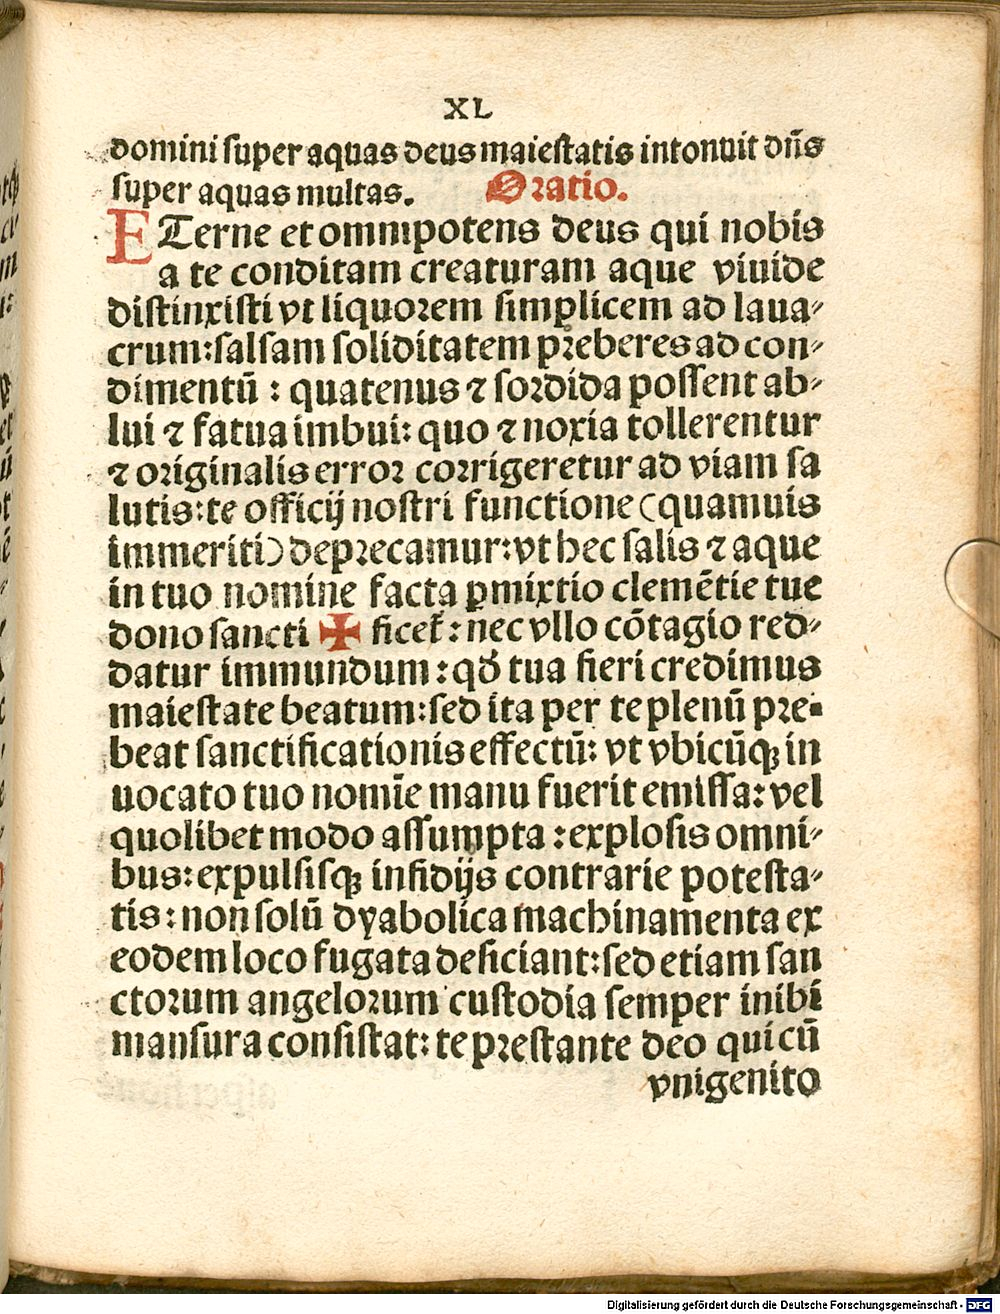 XL
domini super aquas deus maiestatis intonuit dñs
super aquas multas. Oratio.
ETerne et omnipotens deus qui nobis
a te conditam creaturam aque viuide
distinxisti vt liquorem simplicem ad laua-
crum: salsam soliditatem preberes ad con-
dimentū : quatenus ⁊ sordida possent ab-
lui ⁊ fatua imbui: quo ⁊ noxia tollerentur
⁊ originalis error corrigeretur ad viam sa
lutis: te officij nostri functione (quamuis
immeriti) deprecamur: vt hec salis ⁊ aque
in tuo nomine facta ꝑmixtio clemētie tue
dono sancti ✠ ficet᷒ : nec vllo cōtagio red-
datur immundum : qď tua fieri credimus
maiestate beatum: sed ita per te plenū pre-
beat sanctificationis effectū: vt vbicūqꝫ in
uocato tuo nomīe manu fuerit emissa: vel
quolibet modo assumpta : explosis omni-
bus: expulsisqꝫ insidijs contrarie potesta-
tis : non solū dyabolica machinamenta ex
eodem loco fugata deficiant: sed etiam san
ctorum angelorum custodia semper inibi
mansura consistat: te prestante deo qui cū
vnigenito
Digitalisierung gefördert durch die Deutsche Forschungsgemeinschaft - DFG